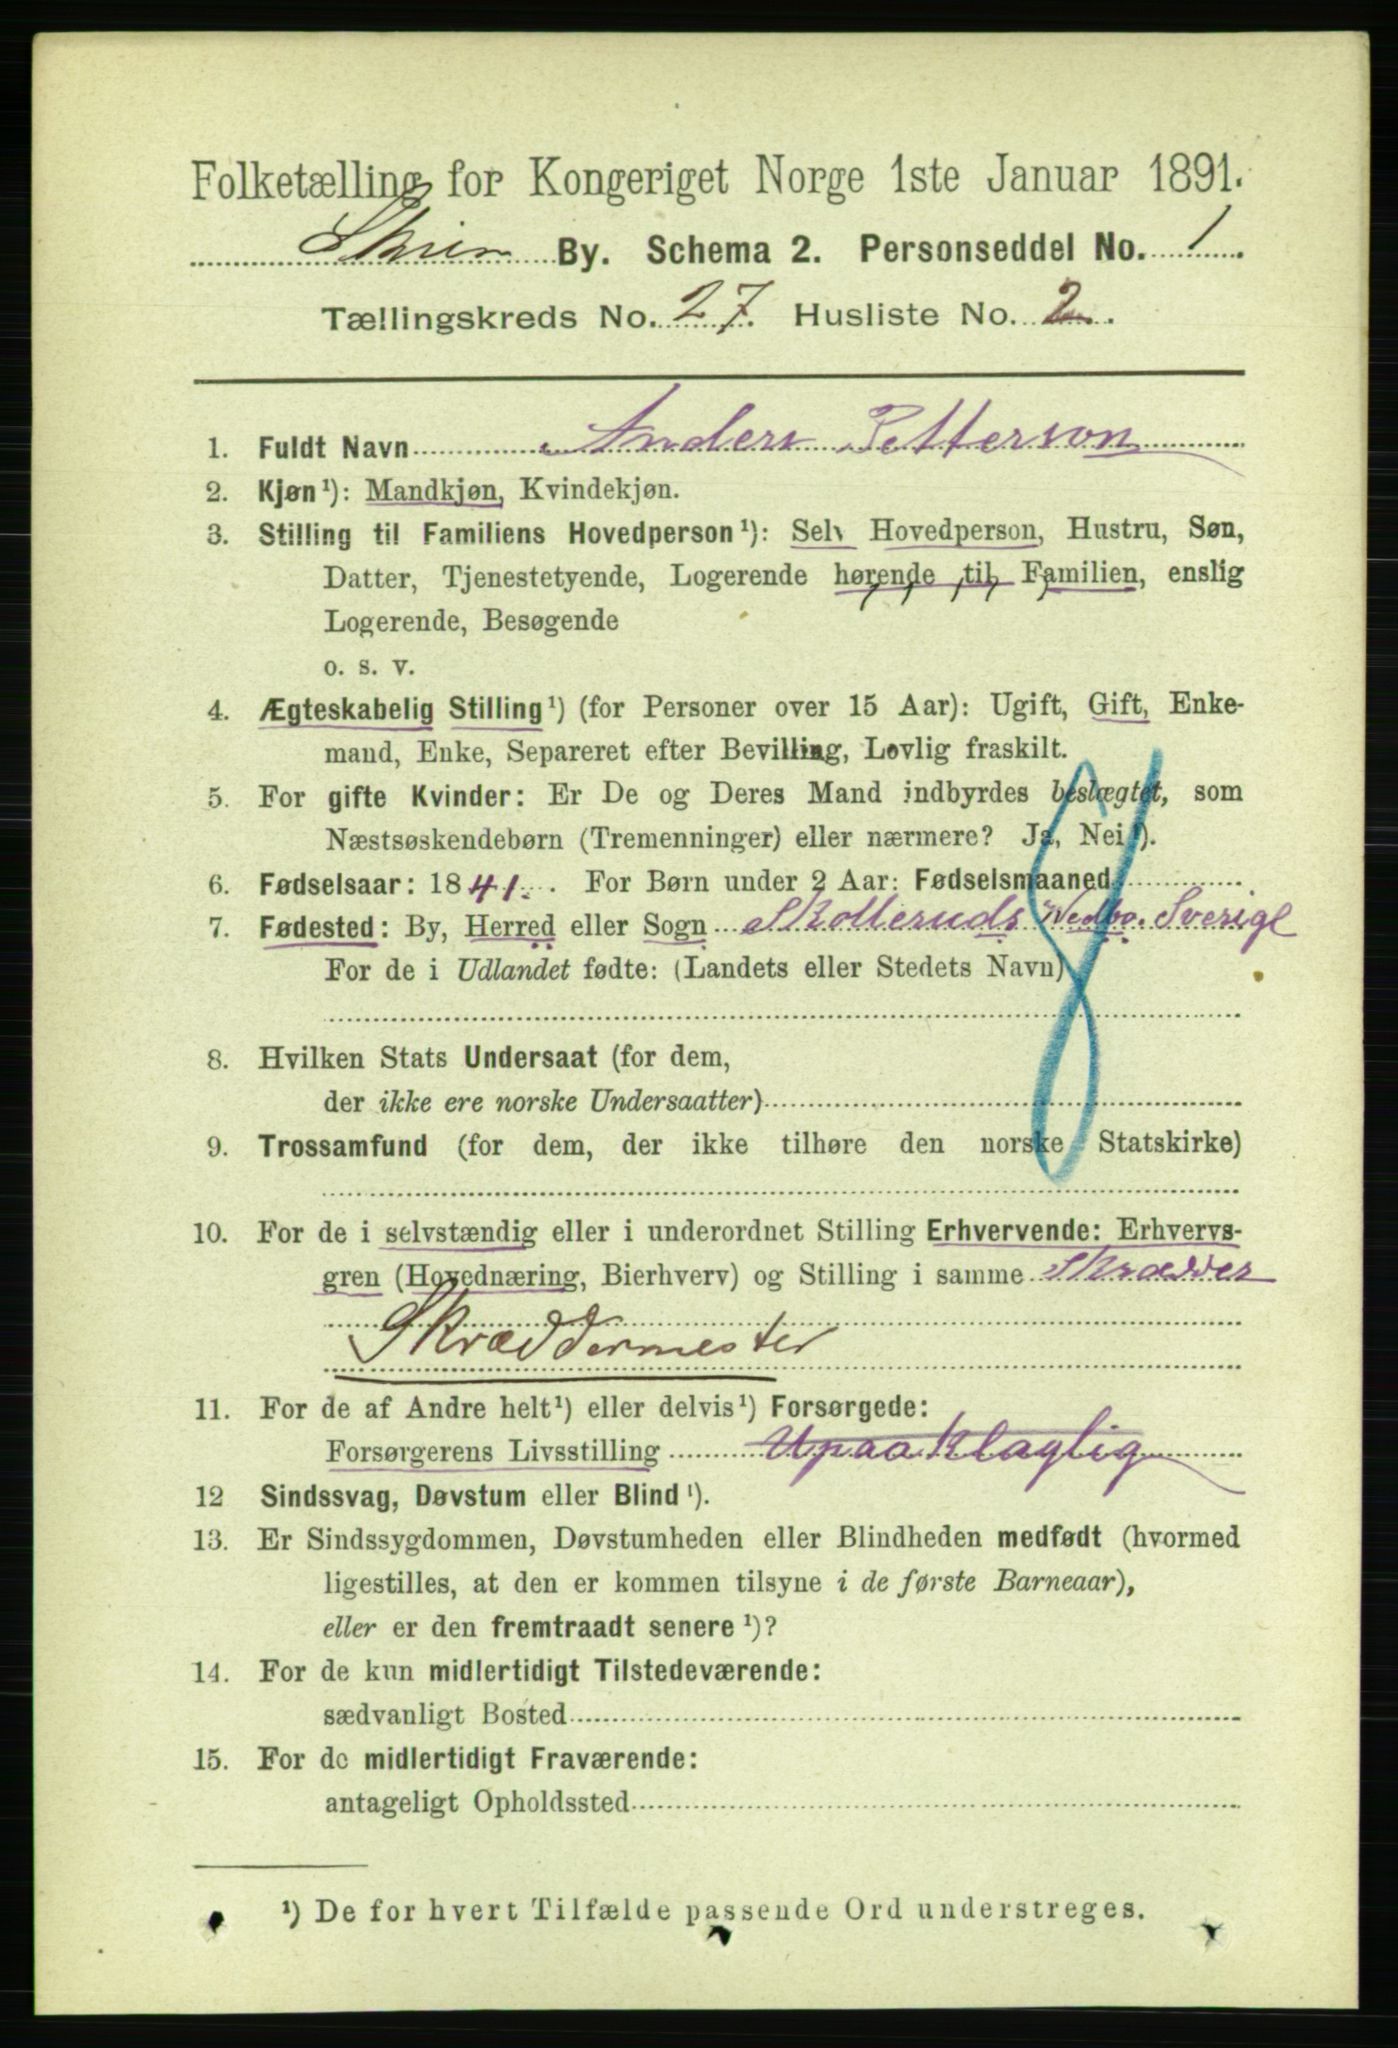 Folketælling for Kongeriget Norge 1ste Januar 1891.
Skien By. Schema 2. Personseddel No. 1
Tællingskreds No. 27. Husliste No. 2.
1. Fuldt Navn Anders Petterson
2. Kjøn¹): Mandkjøn, Kvindekjøn.
3. Stilling til Familiens Hovedperson¹): Selv Hovedperson, Hustru, Søn,
Datter, Tjenestetyende, Logerende hørende til Familien, enslig
Logerende, Besøgende
o. s. v.
4. Ægteskabelig Stilling¹) (for Personer over 15 Aar): Ugift, Gift, Enke-
mand, Enke, Separeret efter Bevilling, Lovlig fraskilt.
5. For gifte Kvinder: Er De og Deres Mand indbyrdes beslægtet, som
Næstsøskendebørn (Tremenninger) eller nærmere? Ja, Nei¹).
6. Fødselsaar: 1841. For Børn under 2 Aar: Fødselsmaaned
7. Fødested: By, Herred eller Sogn Skolleruds Sverige
For de i Udlandet fødte: (Landets eller Stedets Navn)
8. Hvilken Stats Undersaat (for dem,
der ikke ere norske Undersaatter)
9. Trossamfund (for dem, der ikke tilhøre den norske Statskirke)
10. For de i selvstændig eller i underordnet Stilling Erhvervende: Erhvervs-
gren (Hovednæring, Bierhverv) og Stilling i samme Skrædder
Skræddermester
11. For de af Andre helt¹) eller delvis¹) Forsørgede:
Forsørgerens Livsstilling Upaaklaglig
12 Sindssvag, Døvstum eller Blind¹).
13. Er Sindssygdommen, Døvstumheden eller Blindheden medfødt (hvormed
ligestilles, at den er kommen tilsyne i de første Barneaar),
eller er den fremtraadt senere¹)?
14. For de kun midlertidigt Tilstedeværende:
sædvanligt Bosted
15. For de midlertidigt Fraværende:
antageligt Opholdssted
¹) De for hvert Tilfælde passende Ord understreges.